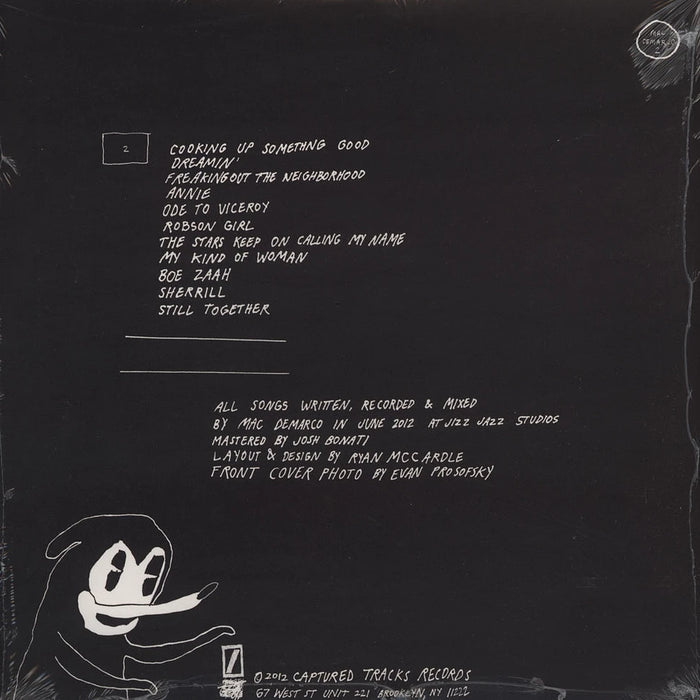 MAC
DEMARCO
2
2
COOKING UP SOMETHNG GOOD
DREAMIN'
FREAKING OUT THE NEIGHBORHOOD
ANNIE
ODE TO VICEROY
ROBSON GIRL
THE STARS KEEP ON CALLING MY NAME
MY KIND OF WOMAN
BOE ZAAH
SHERRILL
STILL TOGETHER
ALL SONGS WRITTEN, RECORDED & MIXED
BY MAC DEMARCO IN JUNE 2012 AT JIZZ JAZZ STUDIOS
MASTERED BY JOSH BONATI
LAYOUT & DESIGN BY RYAN MCCARDLE
FRONT COVER PHOTO BY EVAN PROSOFSKY
©2012 CAPTURED TRACKS RECORDS
67 WEST ST UNIT 221 BROOKLYN, NY 11222